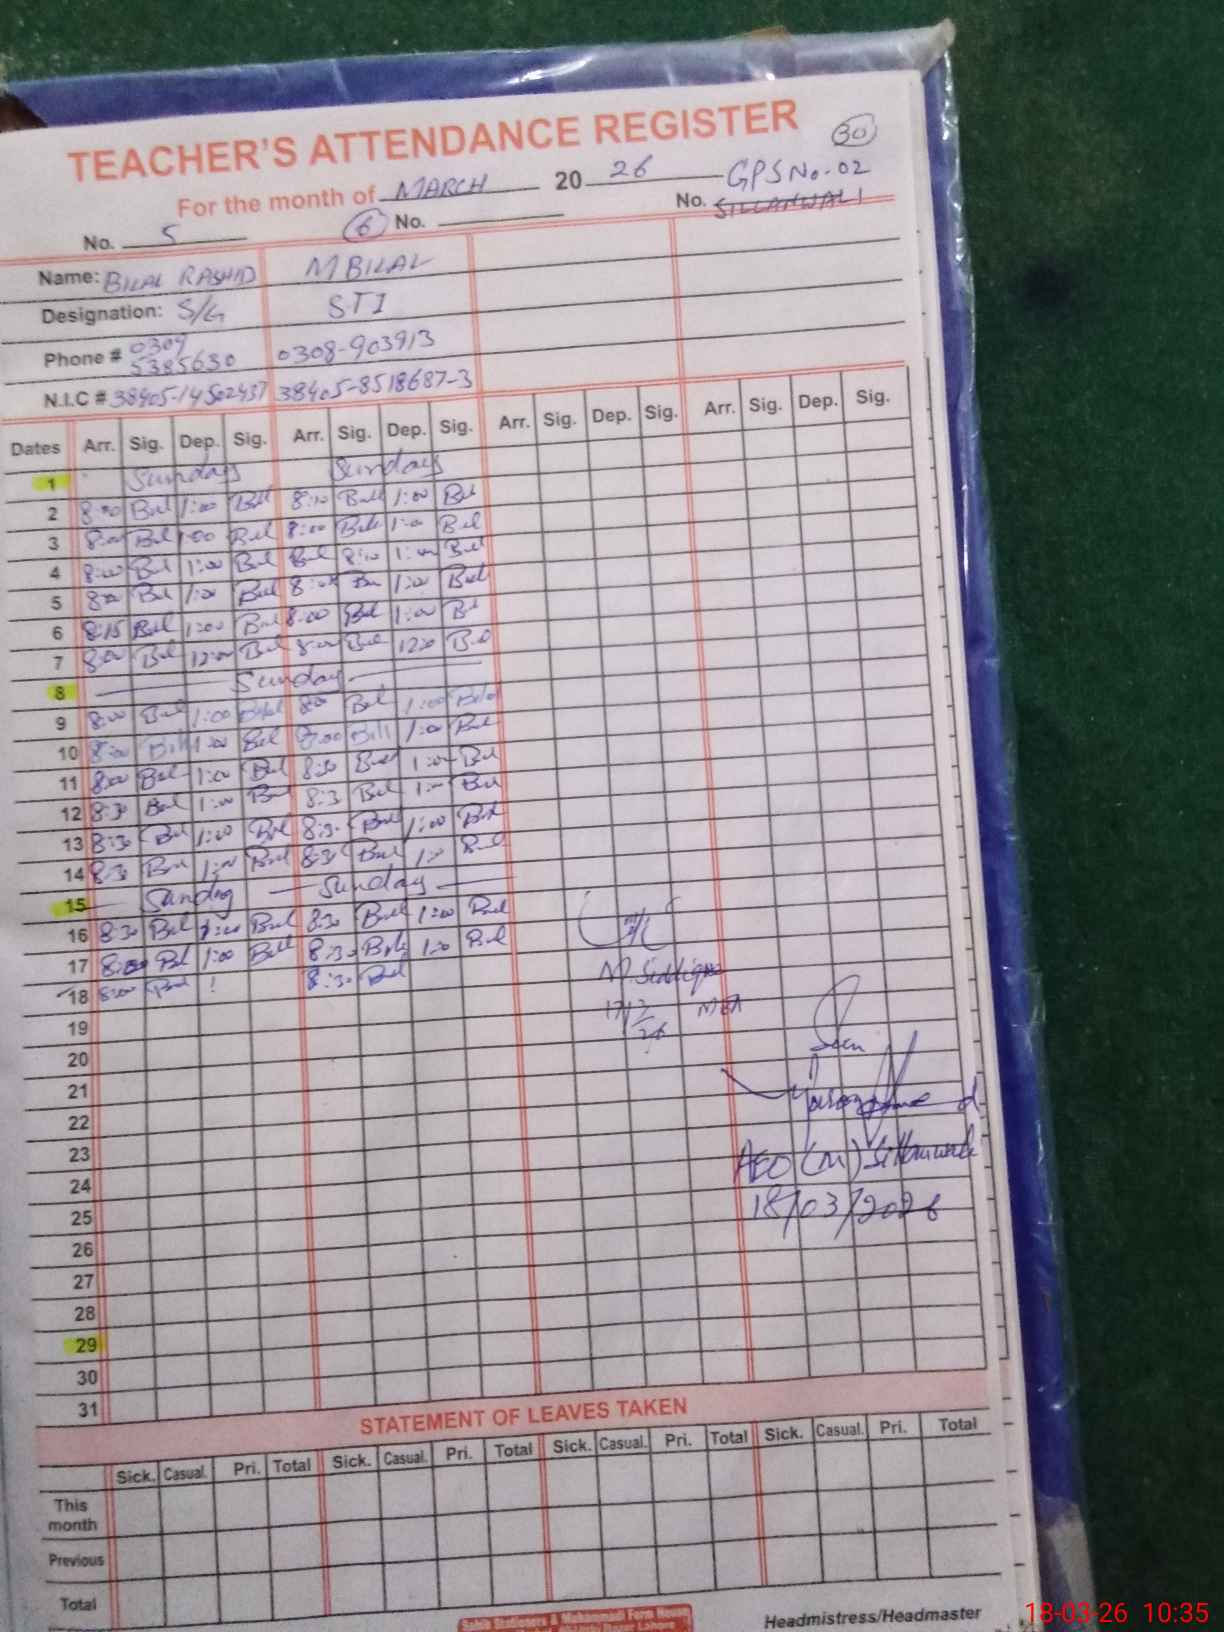 TEACHER'S ATTENDANCE REGISTER 30
For the month of MARCH 20 26 GPS No-02
No. 5 6 No. No. SILLANWALI
Name: BILAL RASHID M BILAL
Designation: S/G STI
Phone # 0309 5385630 0308-903913
N.I.C # 38405-14502437 38405-8518687-3
Dates Arr. Sig. Dep. Sig. Arr. Sig. Dep. Sig. Arr. Sig. Dep. Sig. Arr. Sig. Dep. Sig.
1 Sunday Sunday
2 8:00 Bil 1:00 Bil 8:10 Bil 1:00 Bil
3 8:00 Bil 1:00 Bil 8:00 Bil 1:00 Bil
4 8:00 Bil 1:00 Bil Bil 8:10 1:00 Bil
5 8:00 Bil 1:00 Bil 1:00 Bil
6 8:15 Bil 1:00 Bil 8:00 Bil 1:00 Bil
7 8:00 Bil 12:00 Bil 8:00 Bil 1230 Bil
8 Sunday
9 8:00 Bil 1:00 Bilal 8:00 Bil 1:00 Bil
10 8:00 Bil 1:00 Bil 8:00 Bil 1:00 Bil
11 8:00 Bil 1:00 Bil 8:30 Bil 1:00 Bil
12 8:30 Bil 1:00 Bil 8:3 Bil 1:00 Bil
13 8:30 Bil 1:00 Bil 8:30 Bil 1:00 Bil
14 8:30 Bil 1:00 Bil 8:30 Bil 1:0 Bil
15 Sunday Sunday
16 8:30 Bil 1:00 Bil 8:30 Bil 1:00 Bil
17 8:00 Bil 1:00 Bil 8:30 Bil 1:0 Bil
M. Siddique
18 8:00 Bil 8:30 Bil
17/3/26 MEA
19
Seen
20
21
22
23
AEO (M) Sillanwali
24
18/03/2026
25
26
27
28
29
30
31
STATEMENT OF LEAVES TAKEN
Sick. Casual. Pri. Total Sick. Casual. Pri. Total Sick. Casual. Pri. Total Sick. Casual. Pri. Total
This month
Previous
Total
Headmistress/Headmaster
18-03-26 10:35